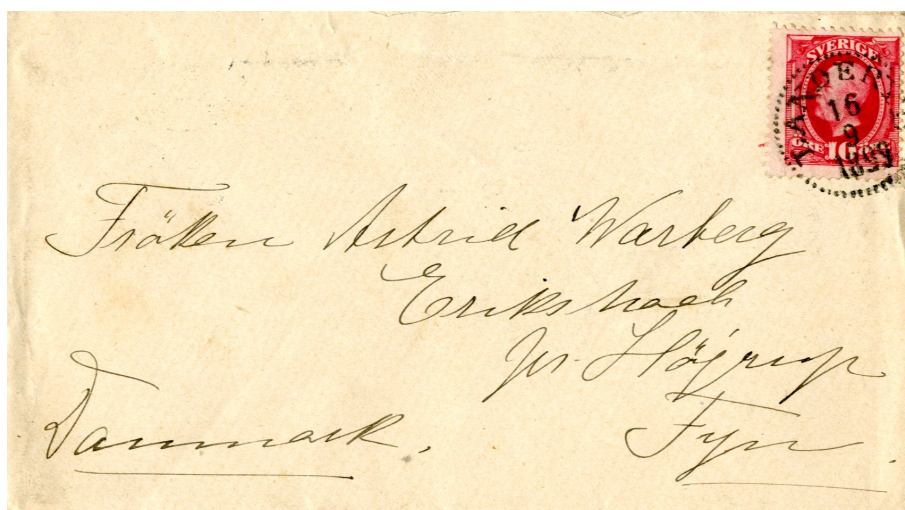 SVERIGE
ÖRE 10 ÖRE
16
9
1899
Fröken Astrid Warberg
Erikshaab
pr. Højrup
Fyn.
Danmark.